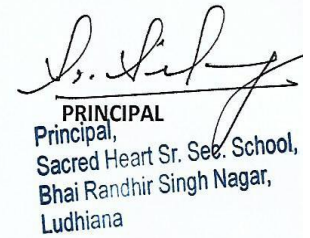 PRINCIPAL
Principal,
Sacred Heart Sr. Sec. School,
Bhai Randhir Singh Nagar,
Ludhiana